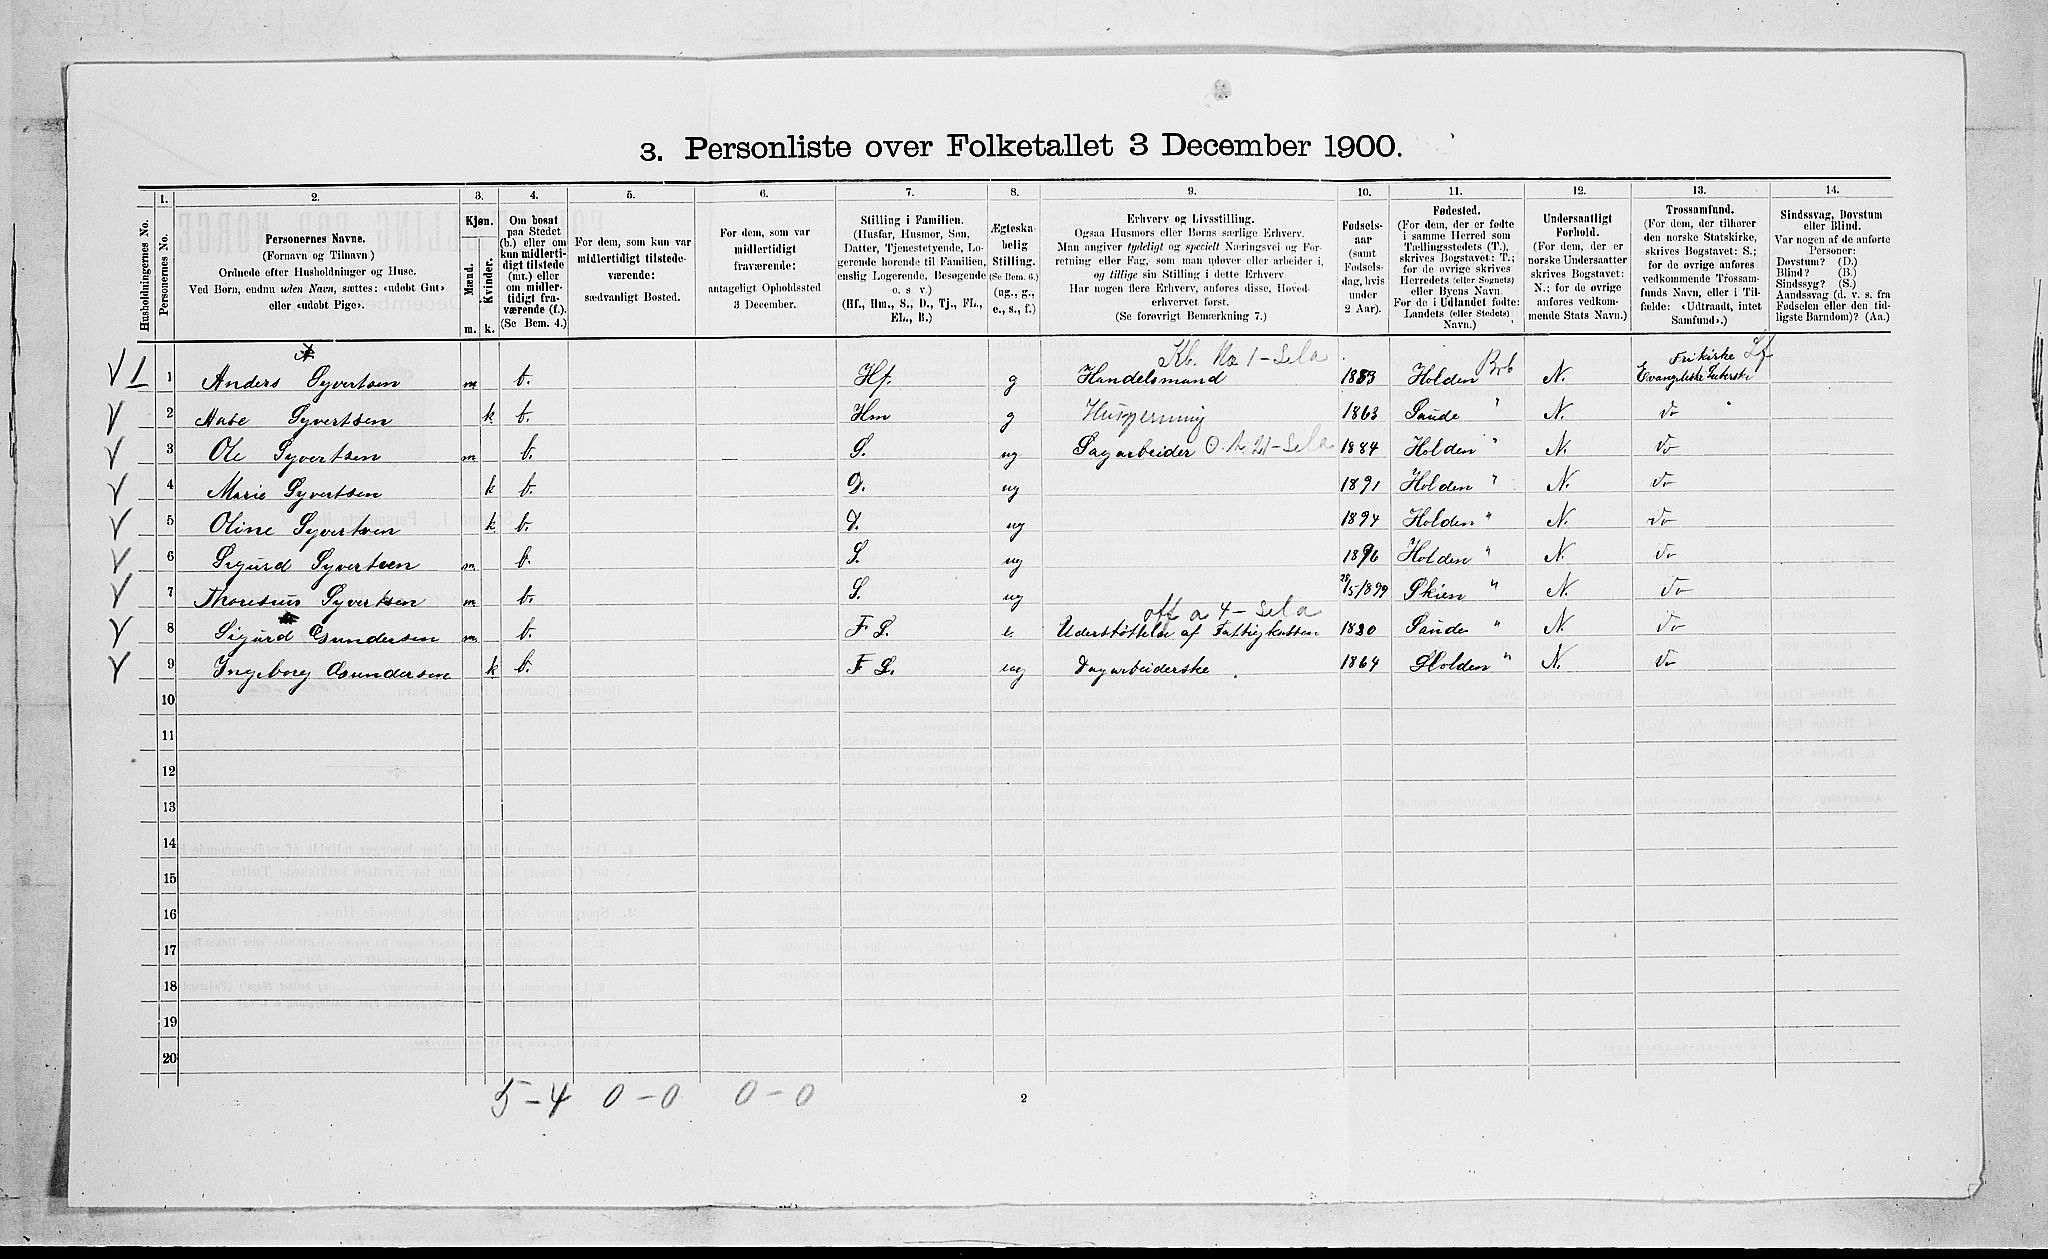 3. Personliste over Folketallet 3 December 1900.
Husholdningernes No.
1. Personernes No.
2. Personernes Navne. (Fornavn og Tilnavn) Ordnede efter Husholdninger og Huse. Ved Børn, endnu uden Navn, sættes: «udøbt Gut» eller «udøbt Pige».
3. Kjøn. Mænd. m. Kvinder. k.
4. Om bosat paa Stedet (b.) eller om kun midlertidigt tilstede (mt.) eller om midlertidigt fraværende (f.). (Se Bem. 4.)
5. For dem, som kun var midlertidigt tilstedeværende: sædvanligt Bosted.
6. For dem, som var midlertidigt fraværende: antageligt Opholdssted 3 December.
7. Stilling i Familien. (Husfar, Husmor, Søn, Datter, Tjenestetyende, Logerende hørende til Familien, enslig Logerende, Besøgende o. s v.) (Hf., Hm., S., D., Tj., FL., EL., B.)
8. Ægteskabelig Stilling. (Se Bem. 6.) (ug., g., e., s., f.)
9. Erhverv og Livsstilling. Ogsaa Husmors eller Børns særlige Erhverv. Man angiver tydeligt og specielt Næringsvei og Forretning eller Fag, som man udøver eller arbeider i, og tillige sin Stilling i dette Erhverv. Har nogen flere Erhverv, anføres disse, Hovederhvervet først. (Se forøvrigt Bemærkning 7.)
10. Fødselsaar (samt Fødselsdag, hvis under 2 Aar).
11. Fødested. (For dem, der er fødte i samme Herred som Tællingsstedets (T.), skrives Bogstavet: T.; for de øvrige skrives Herredets (eller Sognets) eller Byens Navn. For de i Udlandet fødte: Landets (eller Stedets) Navn.)
12. Undersaatligt Forhold. (For dem, der er norske Undersaatter skrives Bogstavet: N.; for de øvrige anføres vedkommende Stats Navn.)
13. Trossamfund. (For dem, der tilhører den norske Statskirke, skrives Bogstavet: S.; for de øvrige anføres vedkommende Trossamfunds Navn, eller i Tilfælde: «Udtraadt, intet Samfund».)
14. Sindssvag, Døvstum eller Blind. Var nogen af de anførte Personer: Døvstum? (D.) Blind? (B.) Sindssyg? (S.) Aandssvag (d. v. s. fra Fødselen eller den tidligste Barndom)? (Aa.)
Kb. No 1 - Sela Brb Frikirke Lf
1 1 Anders Syvertsen m b. Hf. g Handelsmand 1853 Holden N. Evangeliske Luterske
2 Aase Syvertsen k b. Hm g Husgjerning 1863 Saude " N. do "
3 Ole Syvertsen m b. S. ug Sagarbeider 1884 Holden " N. do
4 Marie Syvertsen k b. D. ug 1891 Holden " N. do
5 Oline Syvertsen k b. D. ug 1894 Holden " N. do
6 Sigurd Syvertsen m b. S. ug 1896 Holden " N. do
7 Syvertsen m b. S. ug 28/5 1899 Skien " N. do
off a 4 - Sela
8 Sigurd Gundersen m b. F L. e. Understøttelse af Fattigkassen 1830 Saude " N. do
9 Ingeborg Gundersen k b. F L. ug Dagarbeiderske 1864 Holden " N. do
10
11
12
13
14
15
16
17
18
19
20
5 - 4 0 - 0 0 - 0
2